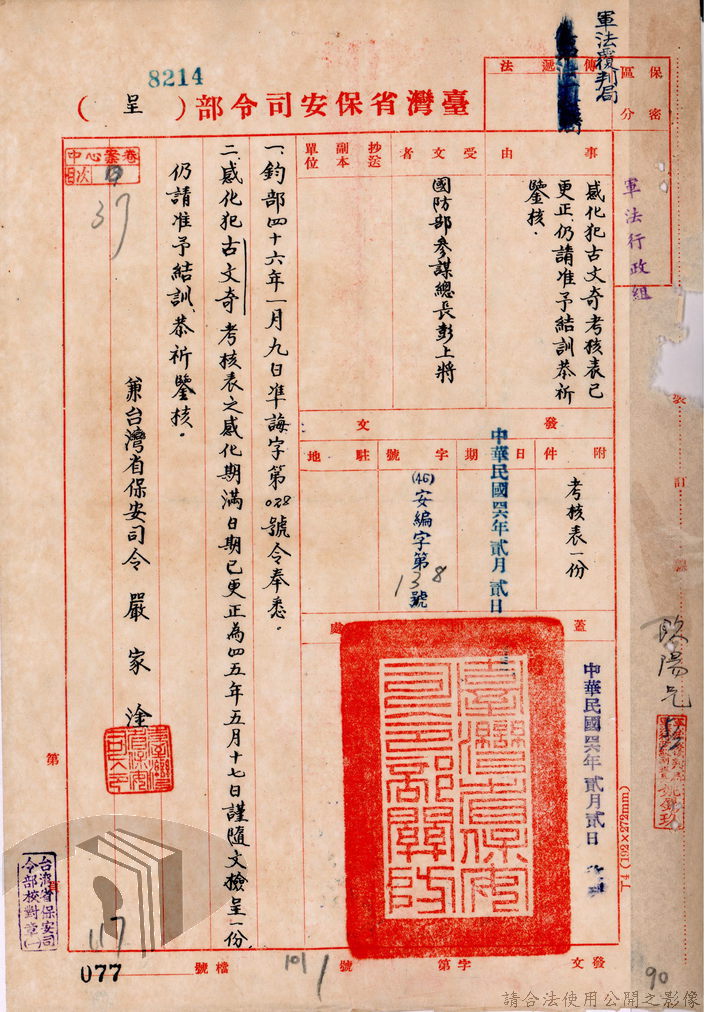 軍法覆判局
保密區分
傳遞法
8214
臺灣省保安司令部（呈）
軍法行政組
事由
感化犯古文奇考核表已
更正仍請准予結訓恭祈
鑒核．
受文者
國防部參謀總長彭上將
抄送副本單位
發文
附件
考核表一份
日期
中華民國四六年貳月貳日
字號
(46)安編字第138號
駐地
蓋
處
中華民國四六年貳月貳日
臺灣省保安司令部關防
一、鈞部四十六年一月九日準誨字第028號令奉悉。
二、感化犯古文奇考核表之感化期滿日期已更正為四五年五月十七日謹隨文檢呈一份，
仍請准予結訓、恭祈鑒核。
兼台灣省保安司令嚴家淦
中心案卷
目次
37
裝
訂
線
歐陽
T4(192×272mm)
第
台灣省保安司令部校對章(一)
117
077
檔號
101
1
發文字第號
90
請合法使用公開之影像